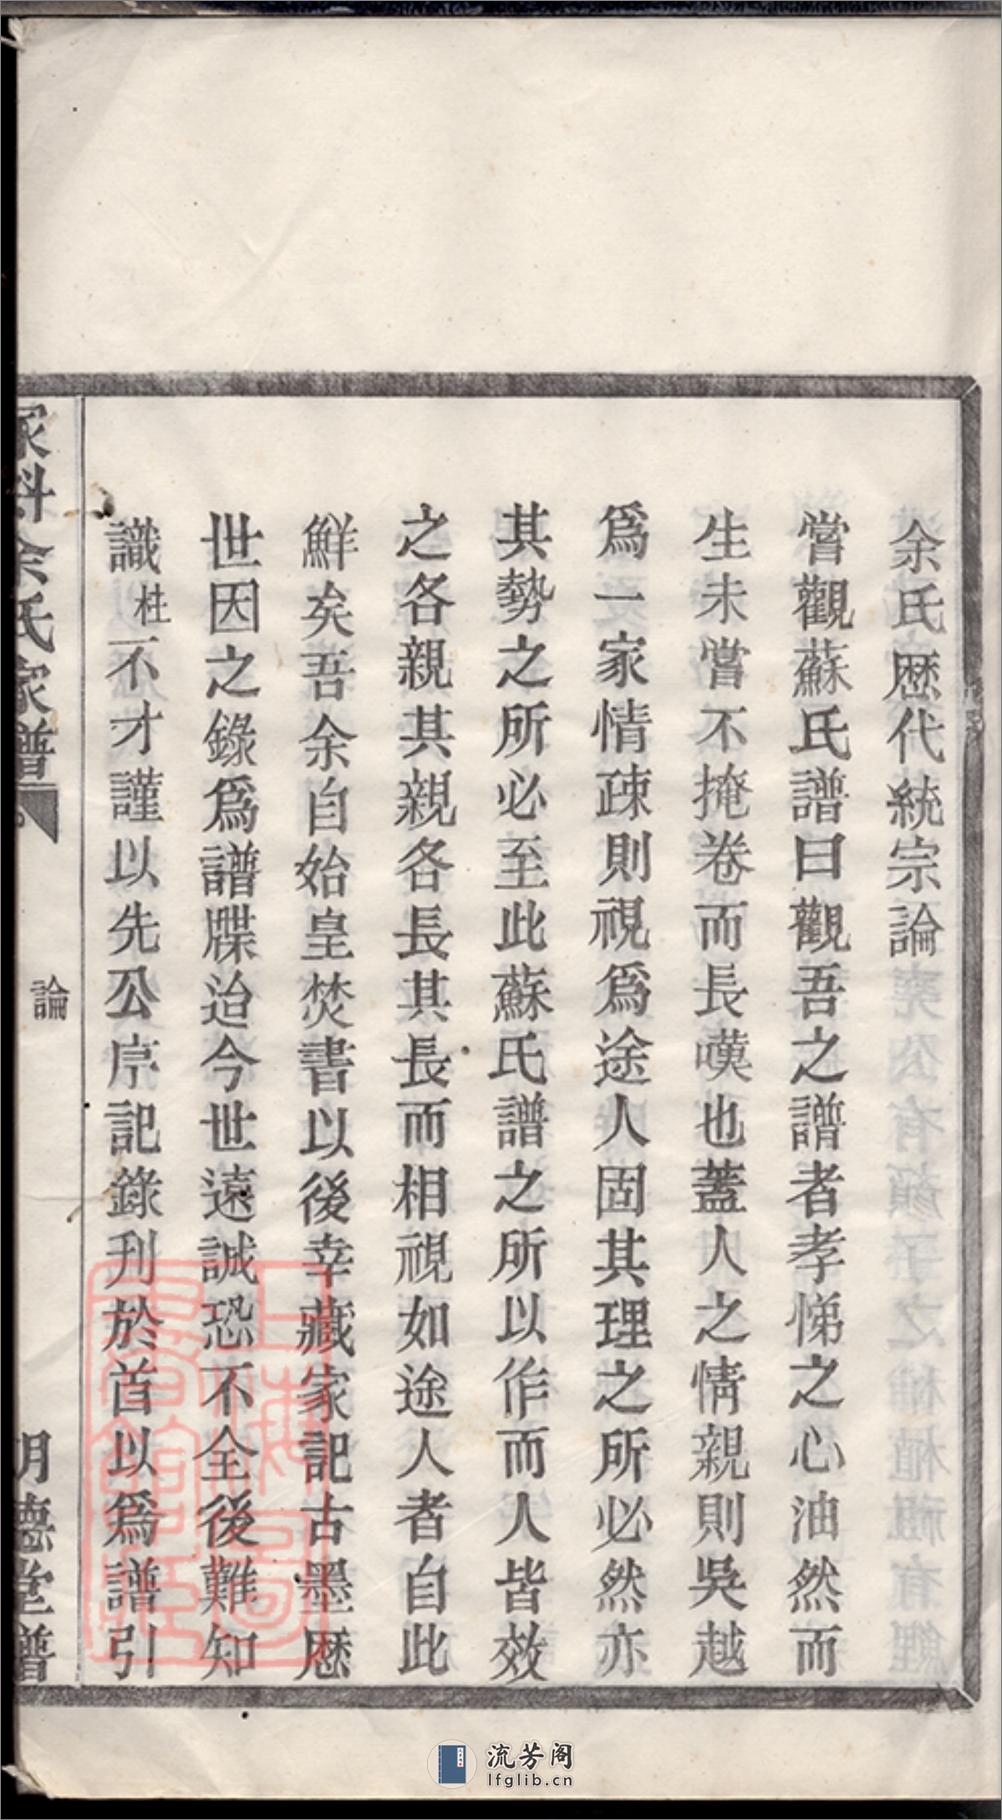 余氏歷代統宗論
嘗觀蘇氏譜曰觀吾之譜者孝悌之心油然而
生未嘗不掩卷而長嘆也蓋人之情親則吳越
爲一家情疎則視爲途人固其理之所必然亦
其勢之所必至此蘇氏譜之所以作而人皆效
之各親其親各長其長而相視如途人者自此
鮮矣吾余自始皇焚書以後幸藏家記古墨歷
世因之錄爲譜牒迨今世遠誠恐不全後難知
識桂不才謹以先公序記錄刊於首以爲譜引
余氏家譜
論
明德堂譜
上海圖書館藏
流芳阁
lfglib.cn